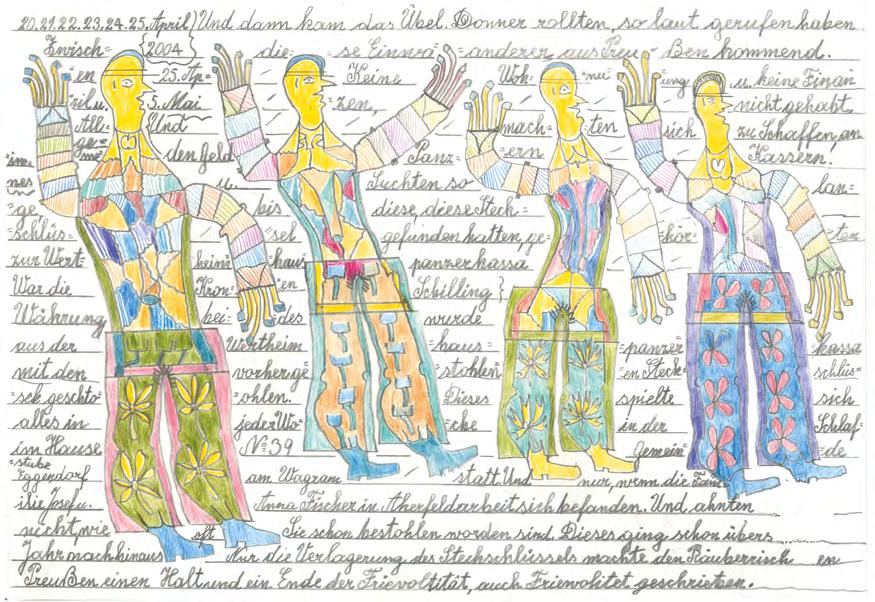 20.21.22.23.24.25. April) Und dann kam das Übel. Donner rollten, so laut gerufen haben
Zwisch= {2004 die= se Einwa= anderer aus Preu= Ben kommend.
en 25. Ap= Keine Woh= nu= ung u. keine Finan
ril u. 5. Mai zen, nicht gehabt.
All= Und mach= ten sich zu Schaffen, an
ge= me den Geld Panz= ern Kassern.
im= nes u. Suchten so lan=
ge bis diese, diese Steck=
=schlüs= sel gefunden hatten, ge= hör= ten
zur Wert= heim hau= panzerkassa
War die Kron= en Schilling }
Währung bei= des wurde
aus der Wertheim haus= =panzer= kassa
mit den vorherige= stohlen en Steck= schlüs=
=sek geschto= ohlen. Dieses spielte sich
alles in jeder Wo= cke in der Schlaf=
im Hause No 39 Gemein= de
=stube
Eggendorf am Wagram statt. Und nur, wenn die Fam=
ilie Josef u. Anna Fischer in Akerfeldarbeit sich befanden. Und ahnten
nicht, wie oft Sie schon bestohlen worden sind. Dieses ging schon übers
Jahr nach hinaus Nur die Verlagerung des Stechschlüssels machte den Räuberrisch en
Preußen einen Halt und ein Ende der Frievoltität, auch Frienvolitet geschrieben.